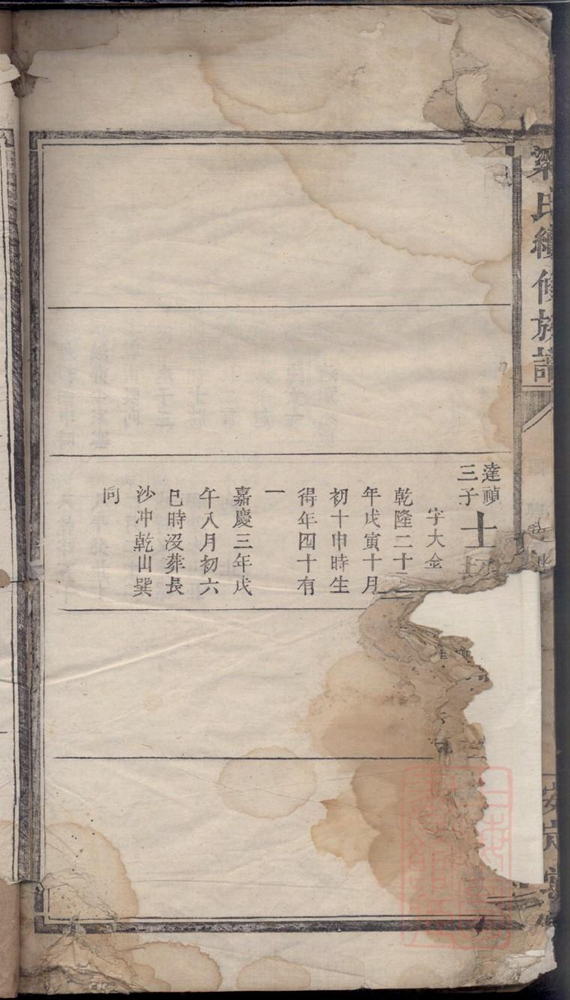 梁氏續修族譜
達禎
三子
士
字大金
乾隆二十三
年戊寅十月
初十申時生
得年四十有
一
嘉慶三年戊
午八月初六
巳時沒葬長
沙冲乾山巽
向
安定堂